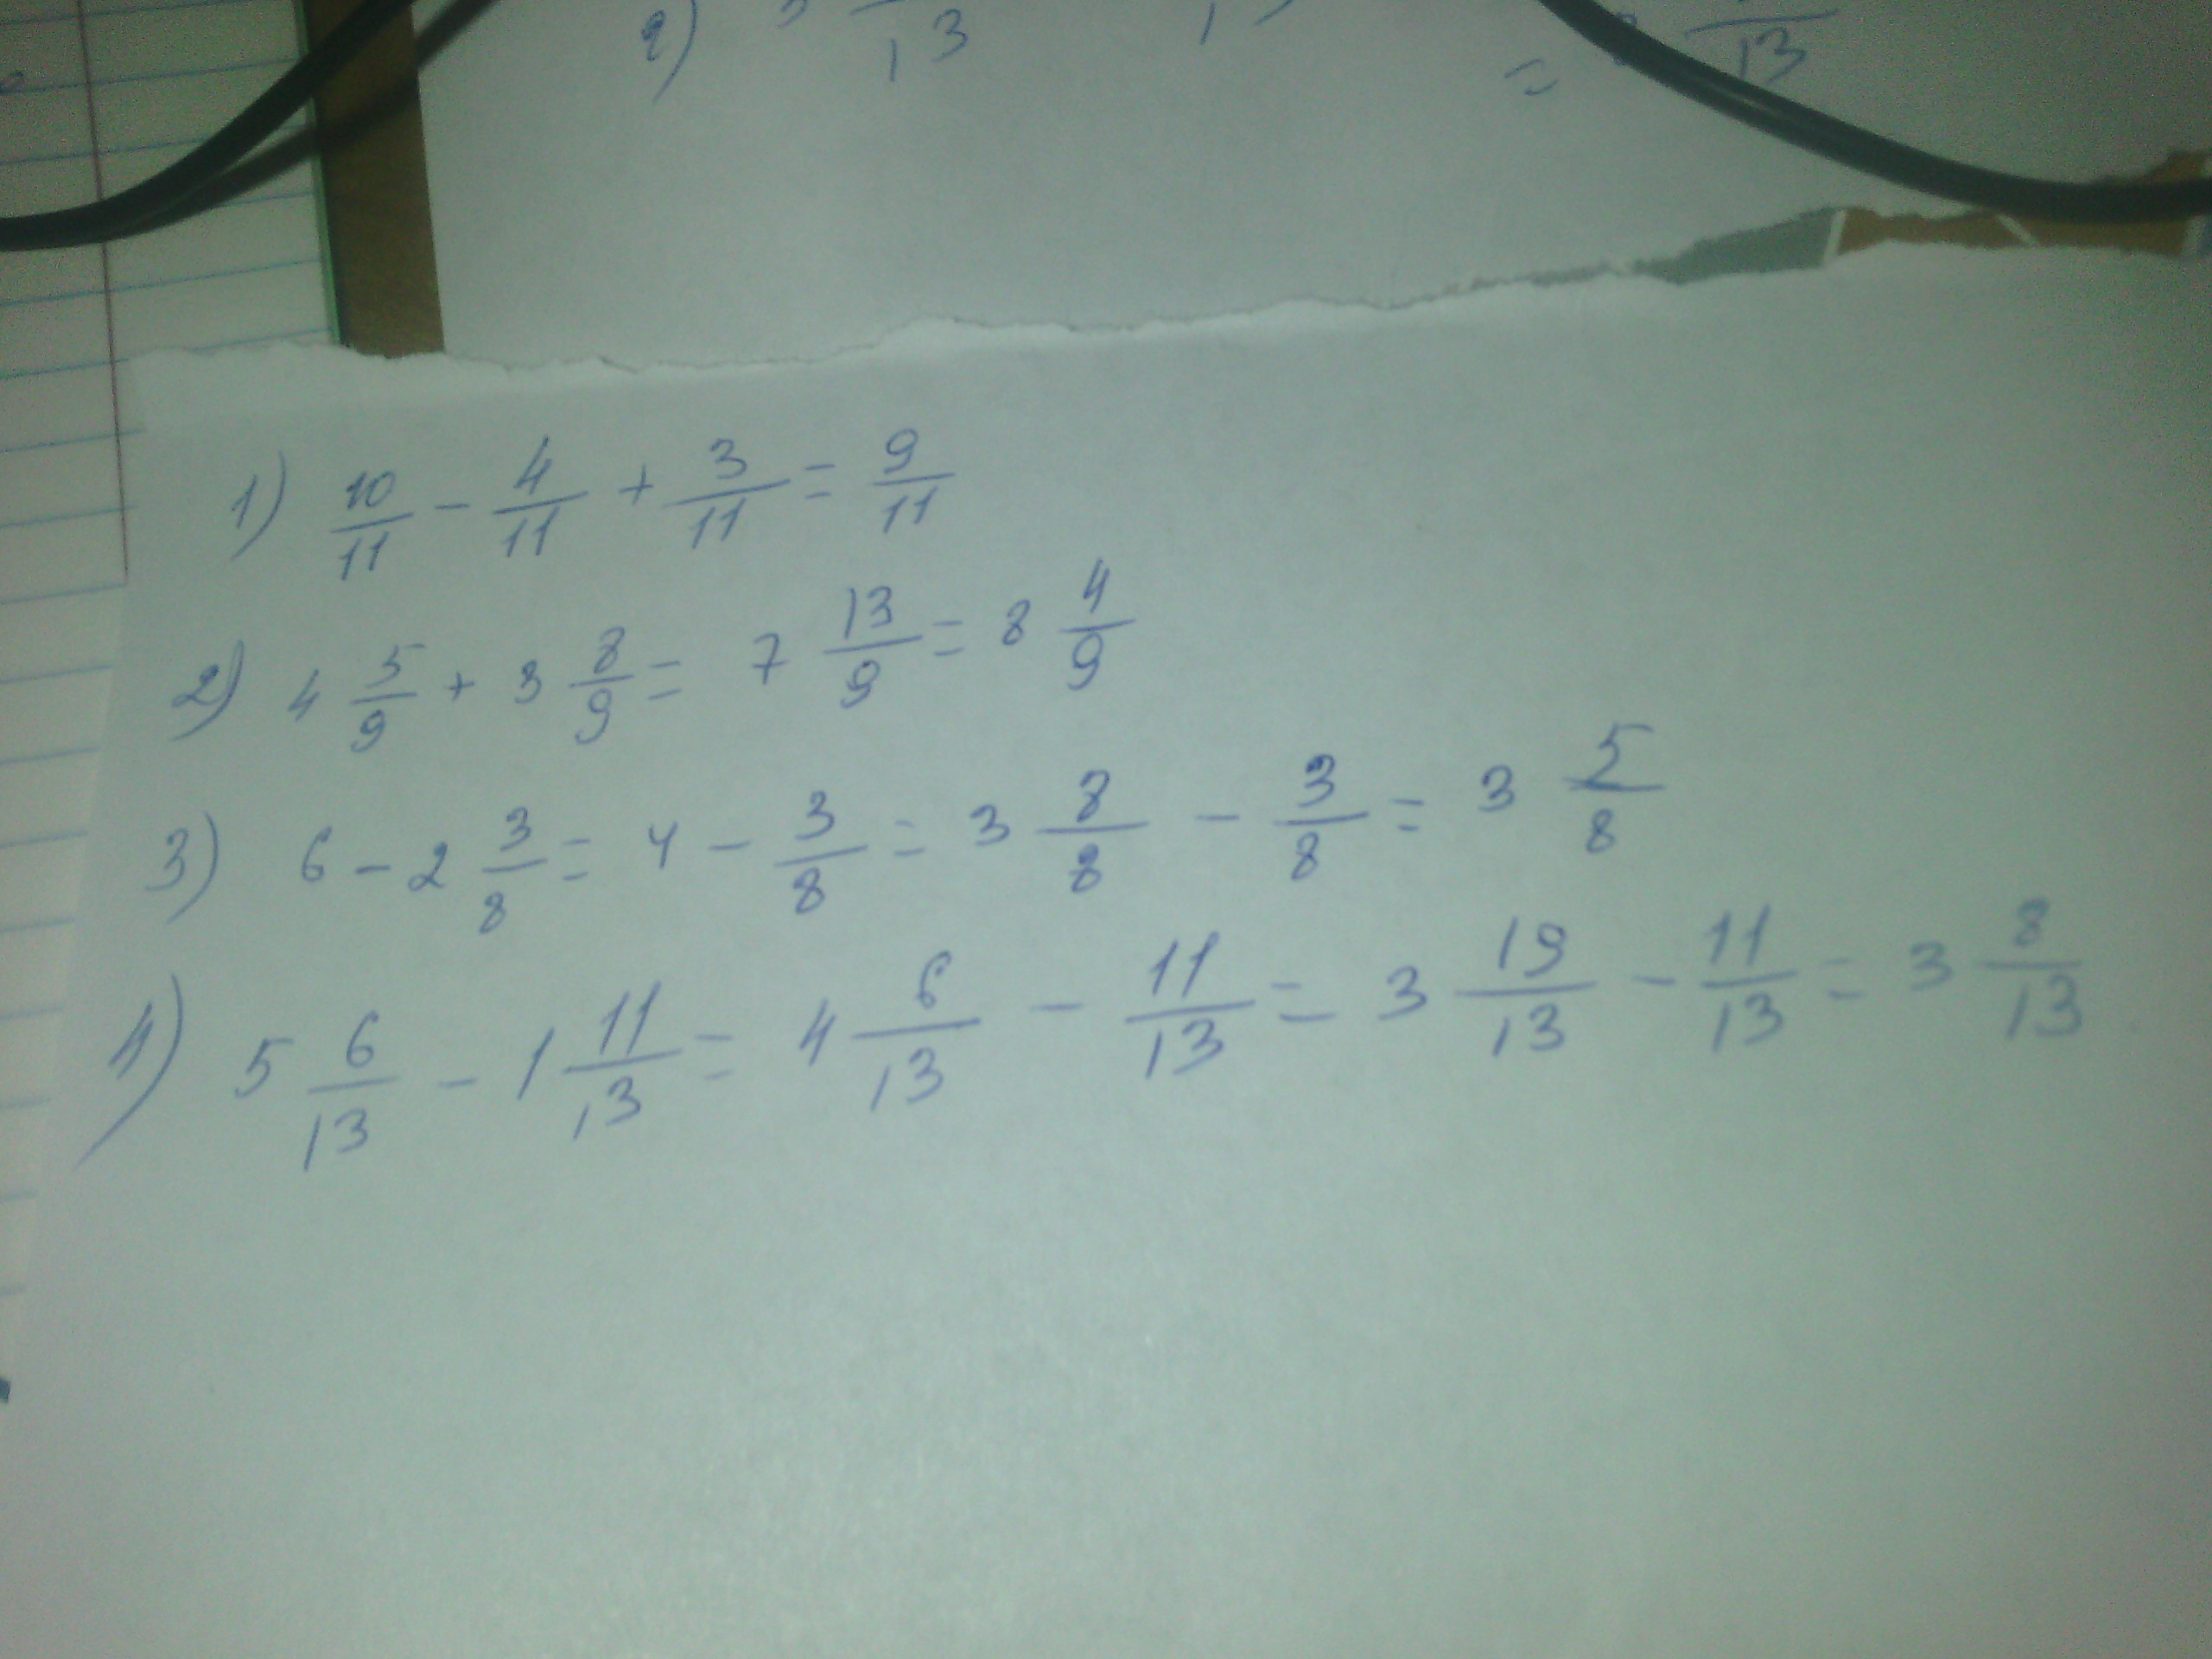 2) 13 = 13
1) 10/11 - 4/11 + 3/11 = 9/11
2) 4 5/9 + 3 8/9 = 7 13/9 = 8 4/9
3) 6 - 2 3/8 = 4 - 3/8 = 3 8/8 - 3/8 = 3 5/8
4) 5 6/13 - 1 11/13 = 4 6/13 - 11/13 = 3 19/13 - 11/13 = 3 8/13